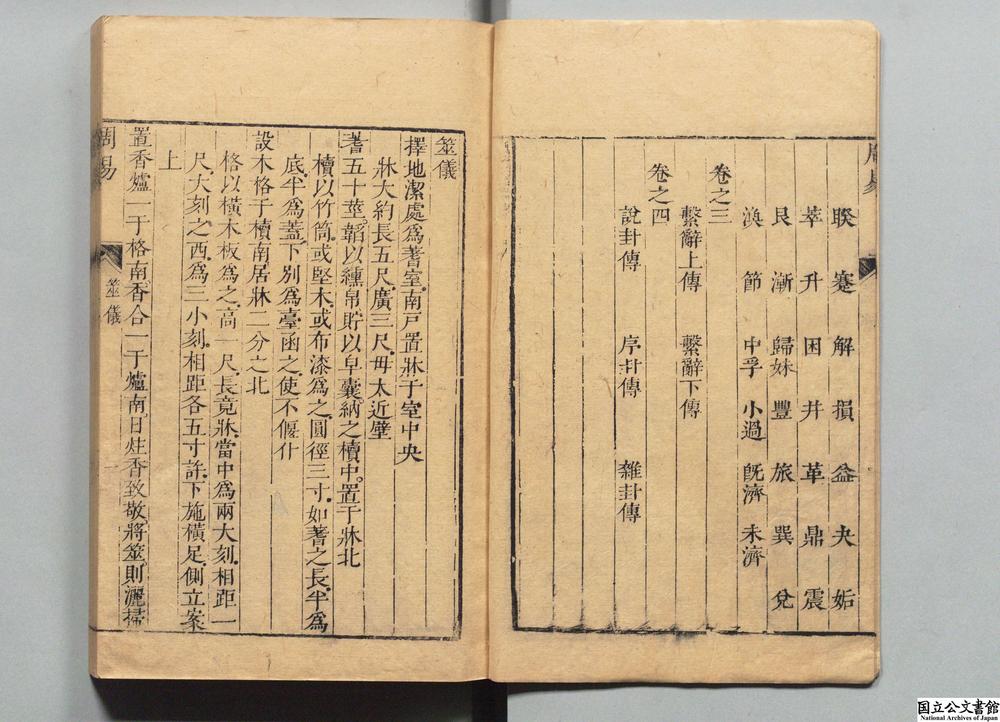 周易
睽 蹇 解 損 益 夬 姤
萃 升 困 井 革 鼎 震
艮 漸 歸妹 豐 旅 巽 兌
渙 節 中孚 小過 旣濟 未濟
卷之三
繫辭上傳 繫辭下傳
卷之四
說卦傳 序卦傳 雜卦傳
筮儀
擇地潔處爲蓍室南戸置牀于室中央
牀大約長五尺廣三尺毋太近壁
蓍五十莖韜以纁帛貯以皁囊納之櫝中置于牀北
櫝以竹筒或堅木或布漆爲之圓徑三寸如蓍之長半爲
底半爲蓋下別爲臺函之使不偃仆
設木格于櫝南居牀二分之北
格以橫木板爲之高一尺長竟牀當中爲兩大刻相距一
尺大刻之西爲三小刻相距各五寸許下施橫足側立案
上
置香爐一于格南香合一于爐南日炷香致敬將筮則灑掃
周易
筮儀
一
国立公文書館
National Archives of Japan